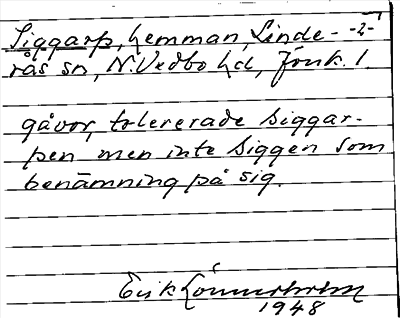 Siggarp, hemman, Linde- -2-
rås sn, N. Vedbo hd, Jönk. l.
gåvor, tolererade Siggar-
pen men inte Siggen som
benämning på sig.
Erik Lönnerholm
1948